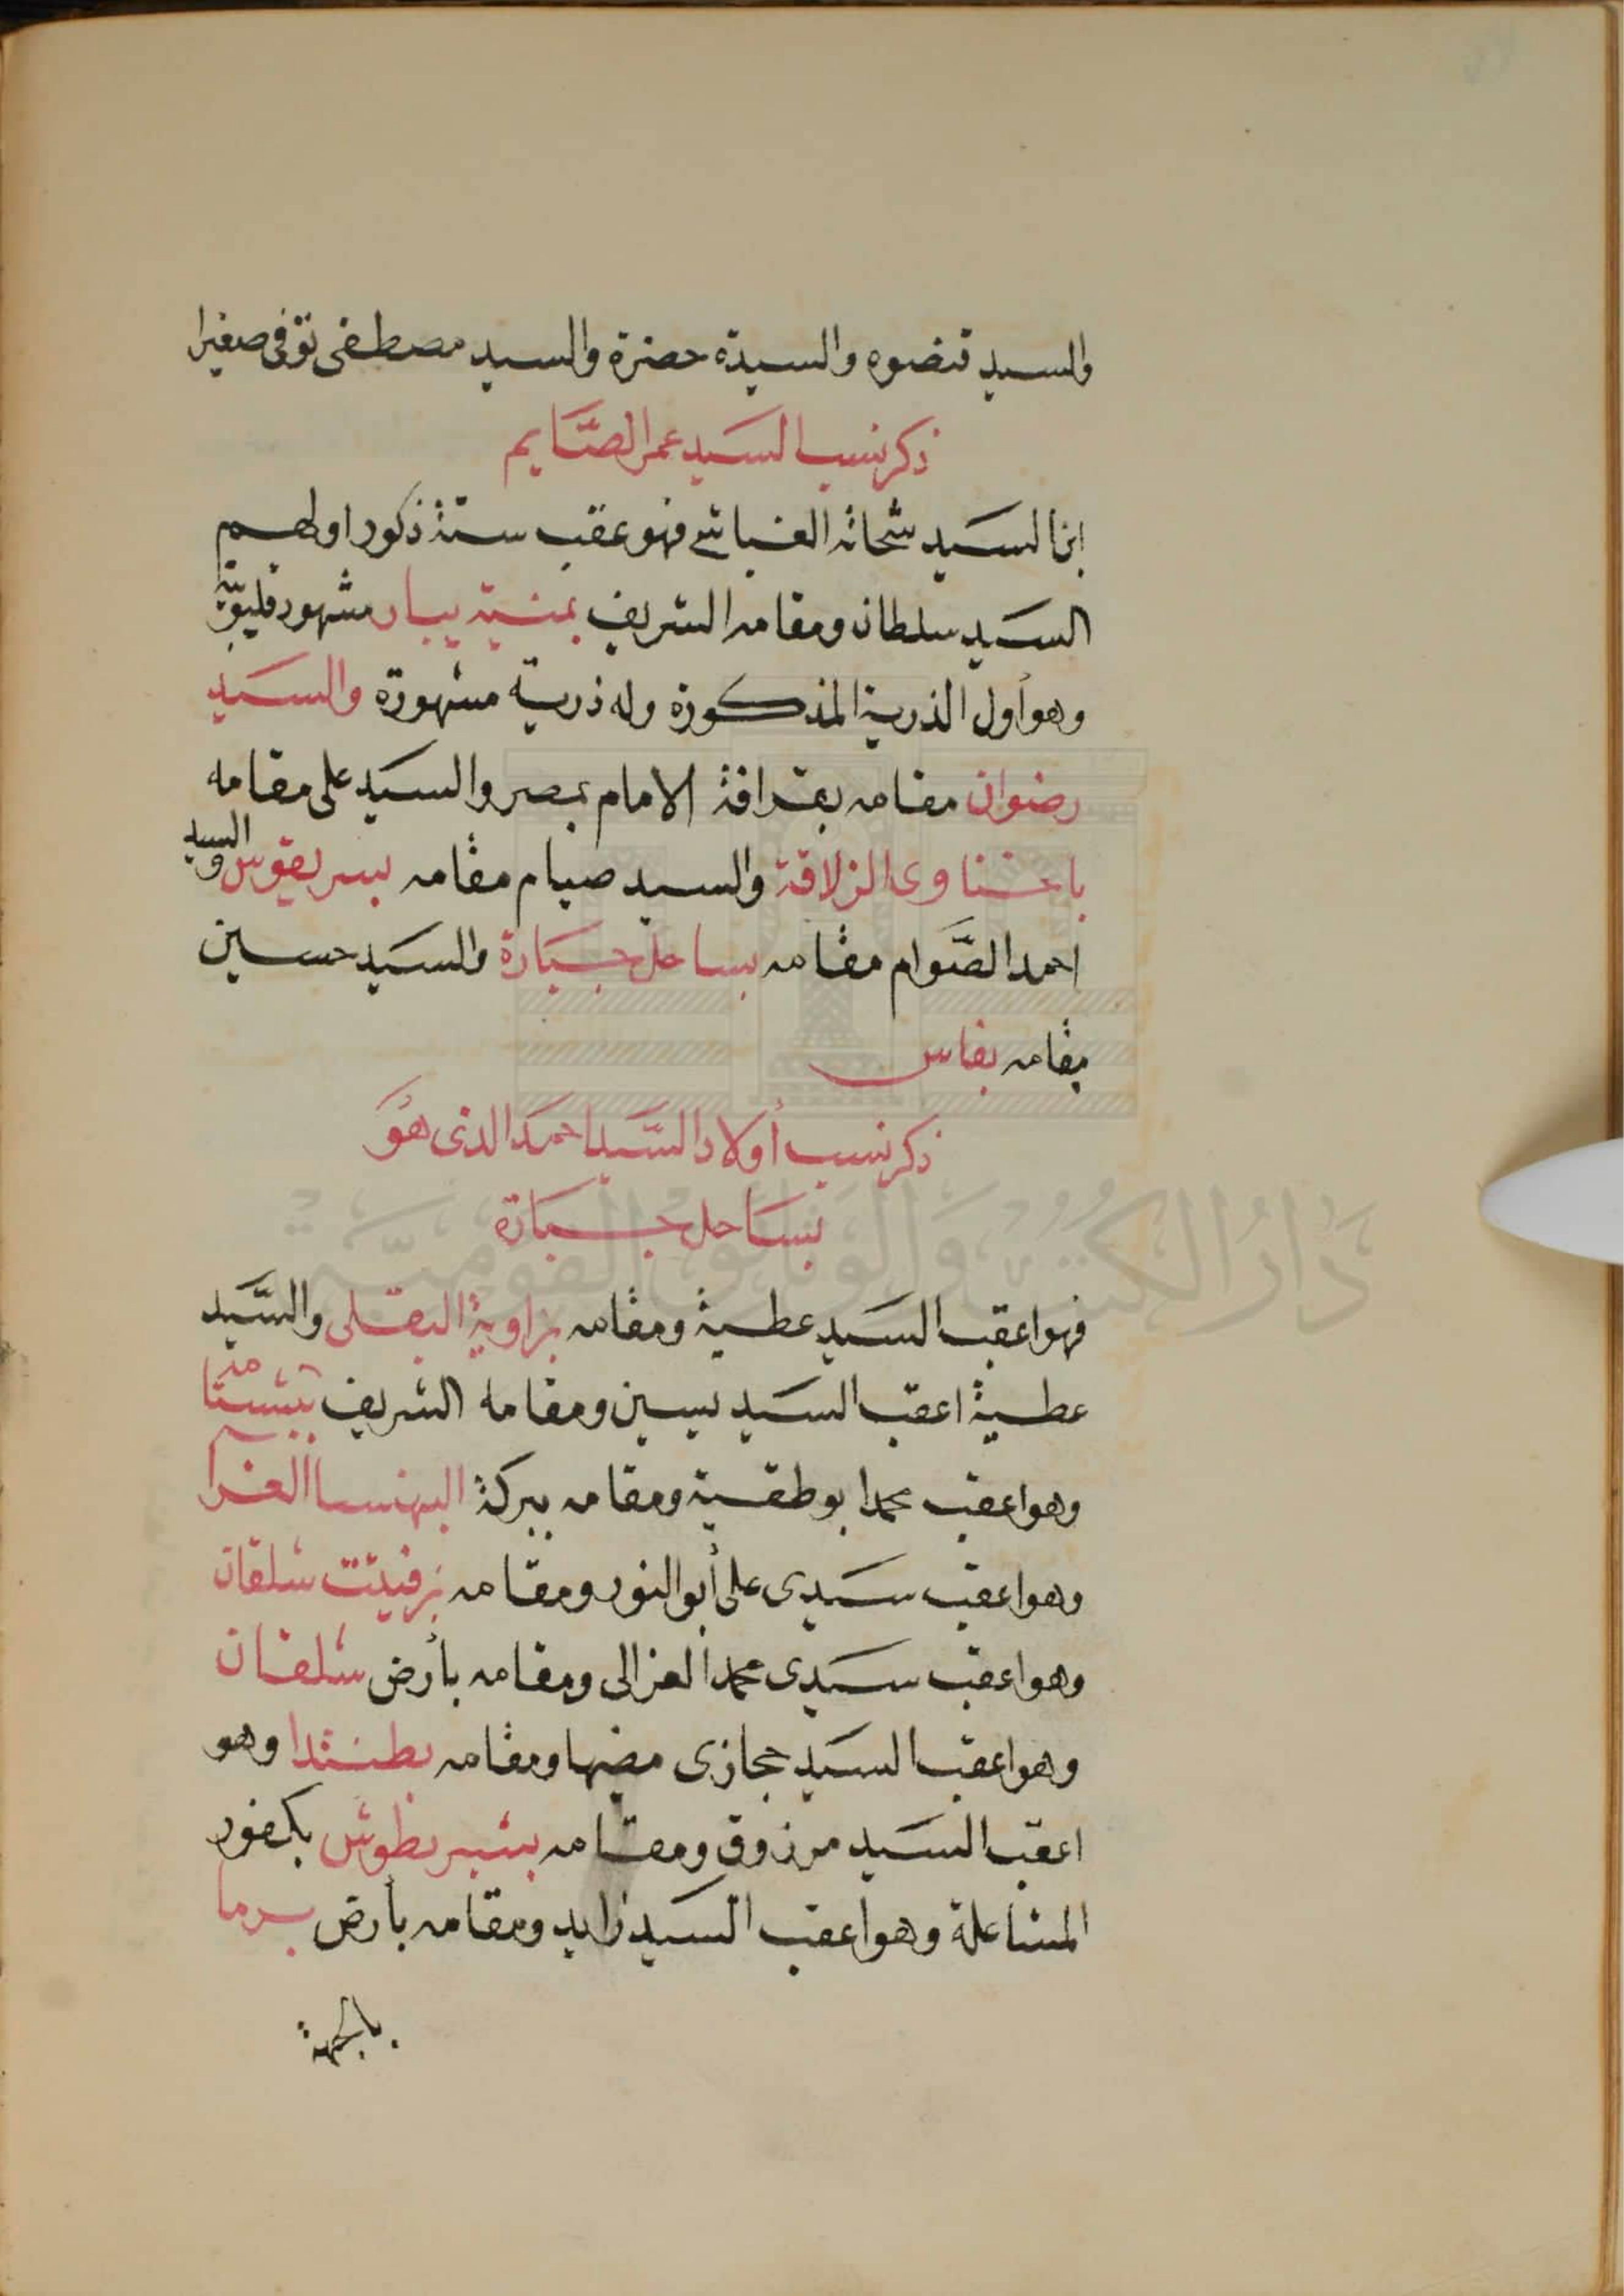 والسيد قنضوه والسيدة حضرة والسيد مصطفى توفى صغيرا
ذكر نسب السيد عمر الصَّايم
ابن السيد شحاته الغباشى فهو عقب ستة ذكور اولهم
السيد سلطان ومقامه الشريف بمنية يبار مشهور قليوبيّة
وهو أول الذرية المذكورة وله ذرية مشهورة والسيد
رضوان مقامه بقرافة الامام بمصر والسيد على مقامه
باخناوى الزلاقة والسيد صيام مقامه بسريقوس والسيد
احمد الصَّوام مقامه بساحل جبارة والسيد حسين
مقامه بفاس
ذكر نسب أولاد السَّيد احمد الذى هُوَ
بساحل جبارة
فهو اعقب السيد عطية ومقامه بزاوية البقلى والسَّيد
عطية اعقب السيد يسين ومقامه الشريف
وهو اعقب محمد ابو طقية ومقامه ببركة البهنسا الغرا
وهو اعقب سيدى على أبو النور ومقامه بزفيتت شلقان
وهو اعقب سيدى محمد الغزالى ومقامه بأرض شلقان
وهو اعقب السيد حجازى مضها ومقامه بطنتدا وهو
اعقب السيد مرزوق ومقامه بشبر بطوش بكفور
المشاعلة وهو اعقب السيد زايد ومقامه بأرض برما
بالجهة
دار الكتب والوثائق القومية